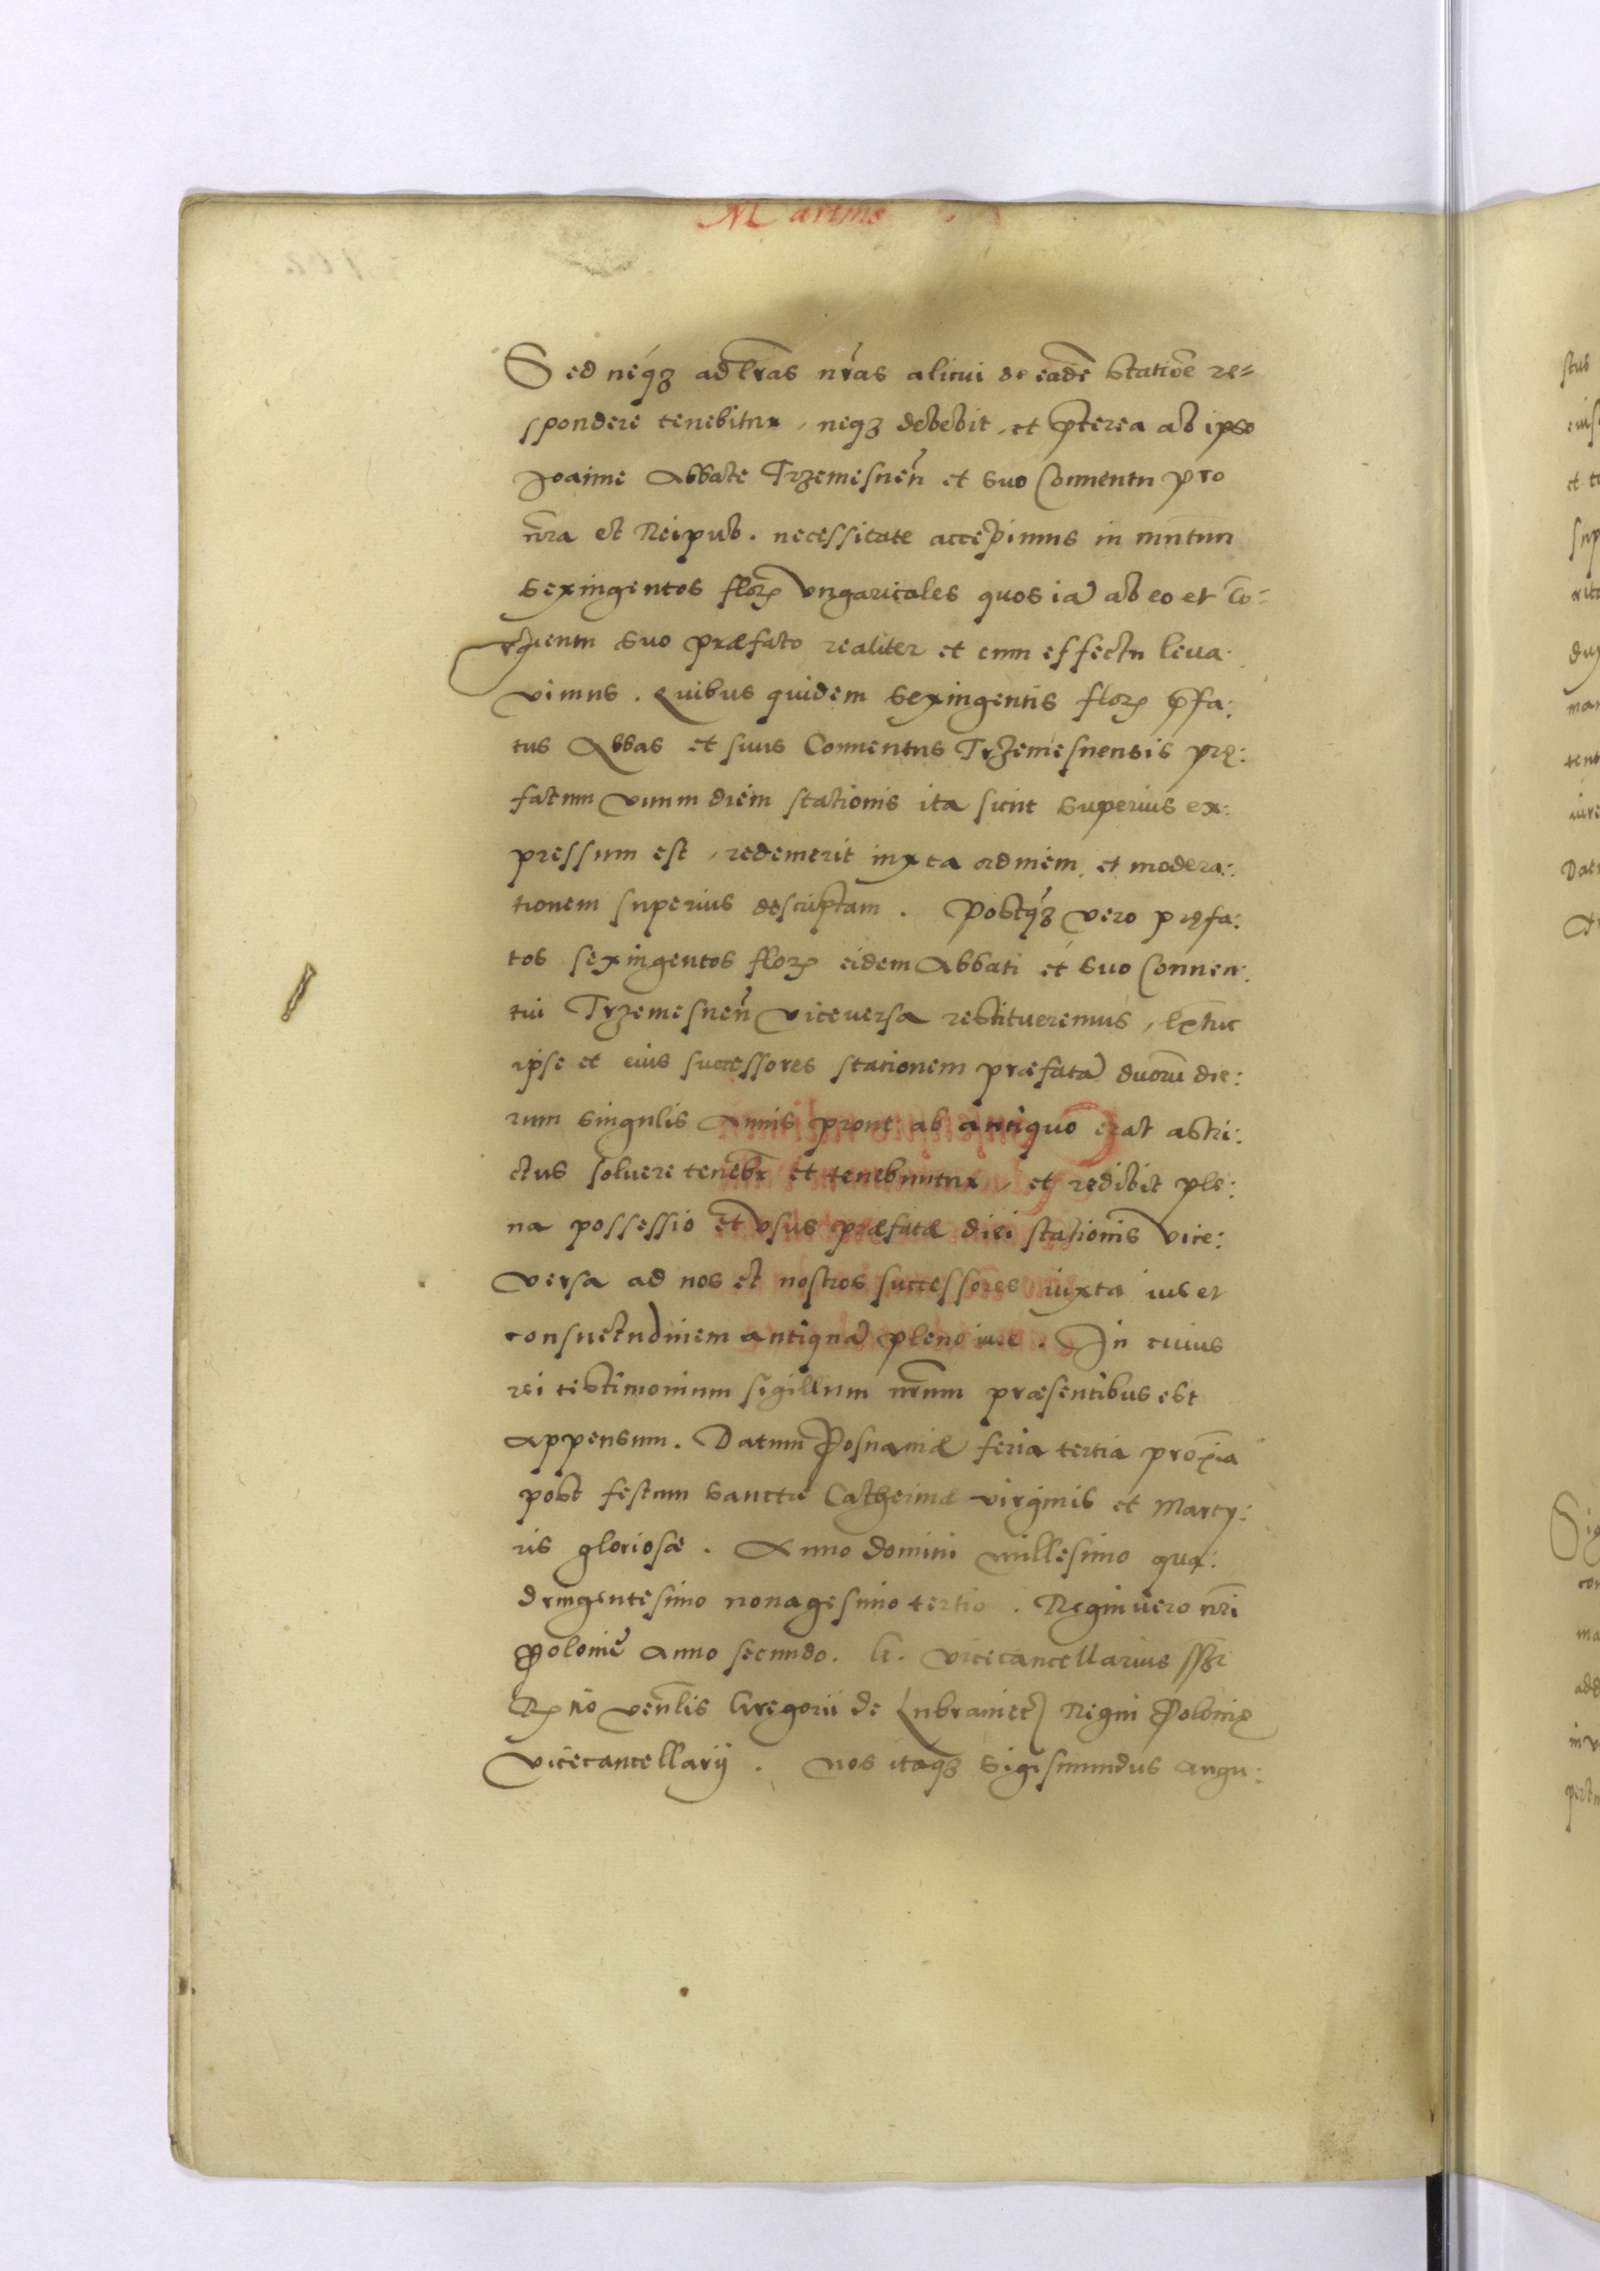 Martinus
Sed neq₃ ad l̄ras nr̄as alicui de eadē statiōe re=
spondere tenebitur, neq₃ debebit, et p̄terea ab ipso
Joanne Abbate Trzemesnen̄ et suo Conuentu pro
nr̄a et Reipub. necessitate accepimus in mutuum
sexingentos flor̄ ungaricales quos iā ab eo et Co:
nuentu suo præfato realiter et cum effectu leua:
vimus. Quibus quidem sexingentis flor̄ p̄fa:
tus Abbas et suus Conuentus Trzemesnensis prę:
fatum vnum diem stationis ita sicut superius ex:
pressum est, redemerit iuxta ordinem et modera:
tionem superius descriptam. Postq₃ vero pręfa:
tos sexingentos flor̄ eidem Abbati et suo Conuen:
tui Trzemesnen̄ viceversa restitueremus, extunc
ipse et eius successores stationem præfatā duorū die:
rum singulis Annis prout ab antiquo erat astri:
ctus soluere tenebr̄ et tenebuntur, et redibit ple:
na possessio et vsus præfatæ diei stationis vice:
versa ad nos et nostros successores iuxta ius et
consuetudinem antiquā pleno iure. In cuius
rei testimonium sigillum nr̄um præsentibus est
appensum. Datum Posnaniæ feria tertia proxīa
post festum sanctæ Catherinæ virginis et Marty:
ris gloriosæ. Anno domini millesimo qua:
dringentesimo nonagesimo tertio. Regni vero nr̄i
Polonię Anno secundo. G. Vicecancellarius sst
Rō ven̄lis Gregorii de Lubraniecz Regni Polonię
Vicecancellarij. Nos itaq₃ Sigismundus Augu: